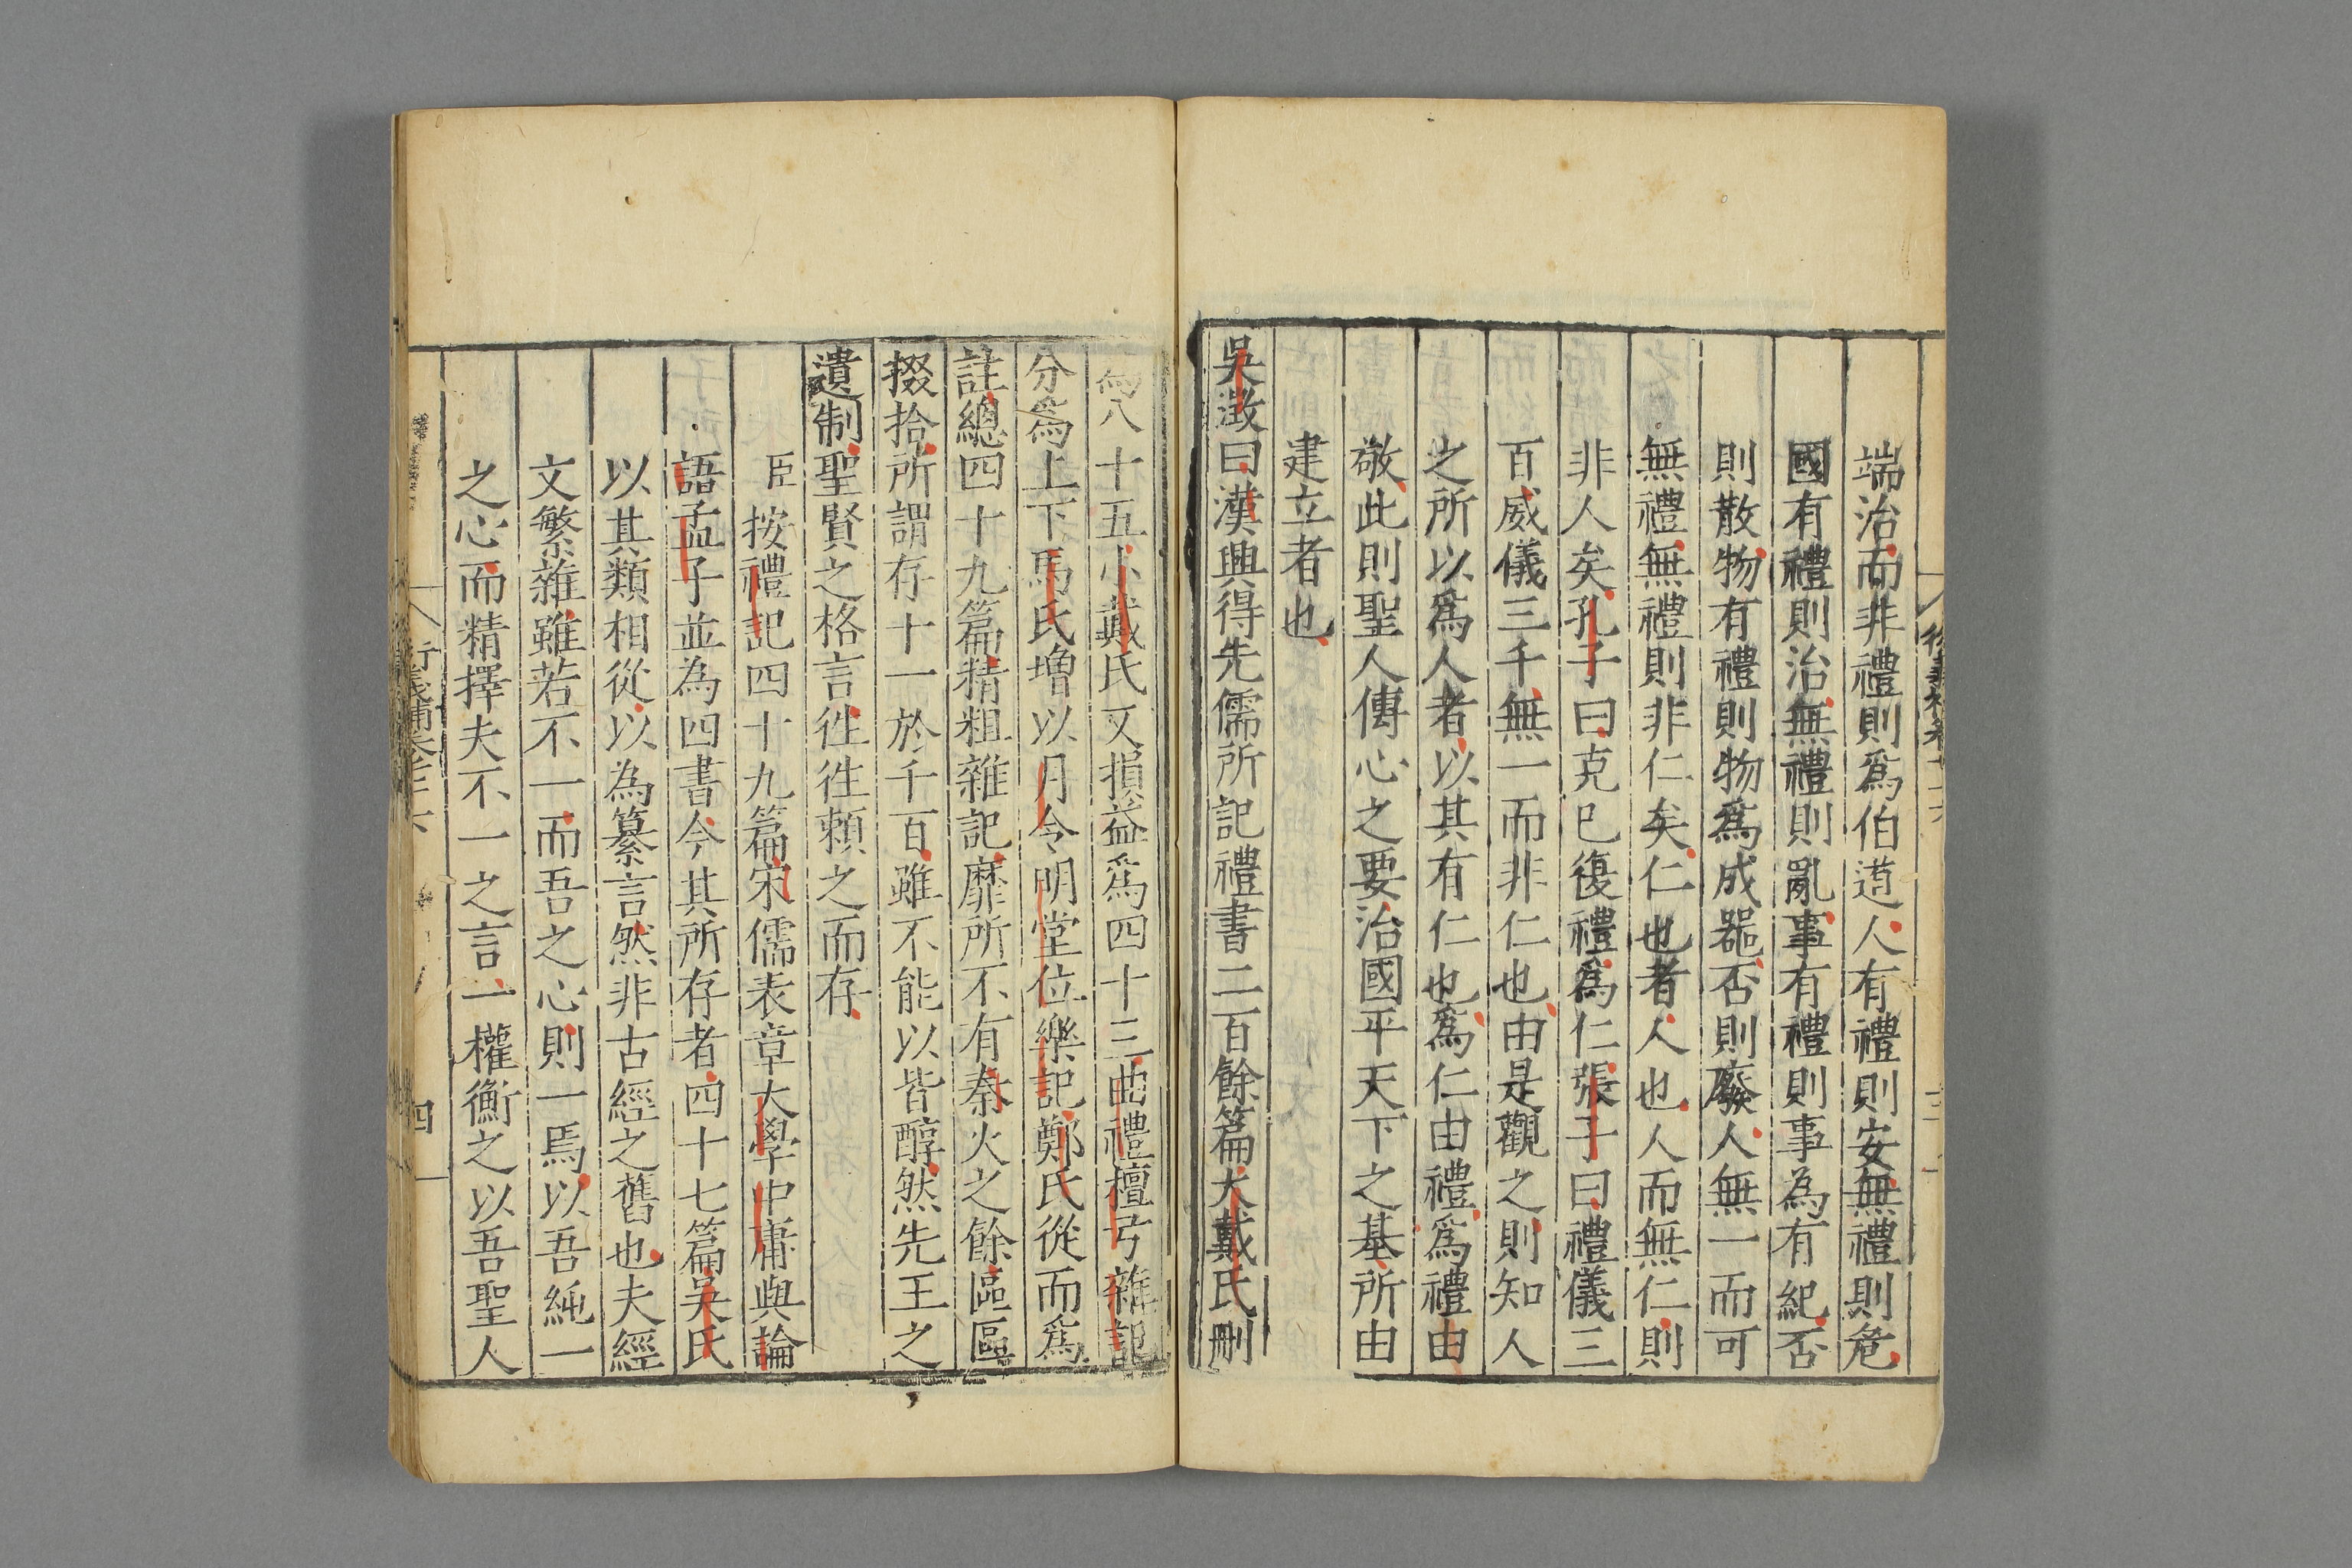 端治而非禮則爲伯道人有禮則安無禮則危
國有禮則治無禮則亂事有禮則事為有紀否
則散物有禮則物爲成器否則廢人無一而可
無禮無禮則非仁矣仁也者人也人而無仁則
非人矣孔子曰克已復禮爲仁張子曰禮儀三
百威儀三千無一而非仁也由是觀之則知人
之所以爲人者以其有仁也爲仁由禮爲禮由
敬此則聖人傳心之要治國平天下之基所由
建立者也
吳澂曰漢興得先儒所記禮書二百餘篇大戴氏刪
八十五小戴氏又損益爲四十三曲禮檀弓雜記
分爲上下馬氏増以月令明堂位樂記鄭氏從而爲
註總四十九篇精粗雜記靡所不有秦火之餘區區
掇拾所謂存十一於千百雖不能以皆醇然先王之
遺制聖賢之格言徃徃賴之而存
臣按禮記四十九篇宋儒表章大學中庸與論
語孟子並為四書今其所存者四十七篇吳氏
以其類相從以為纂言然非古經之舊也夫經
文繁雜雖若不一而吾之心則一焉以吾純一
之心而精擇夫不一之言一權衡之以吾聖人
四